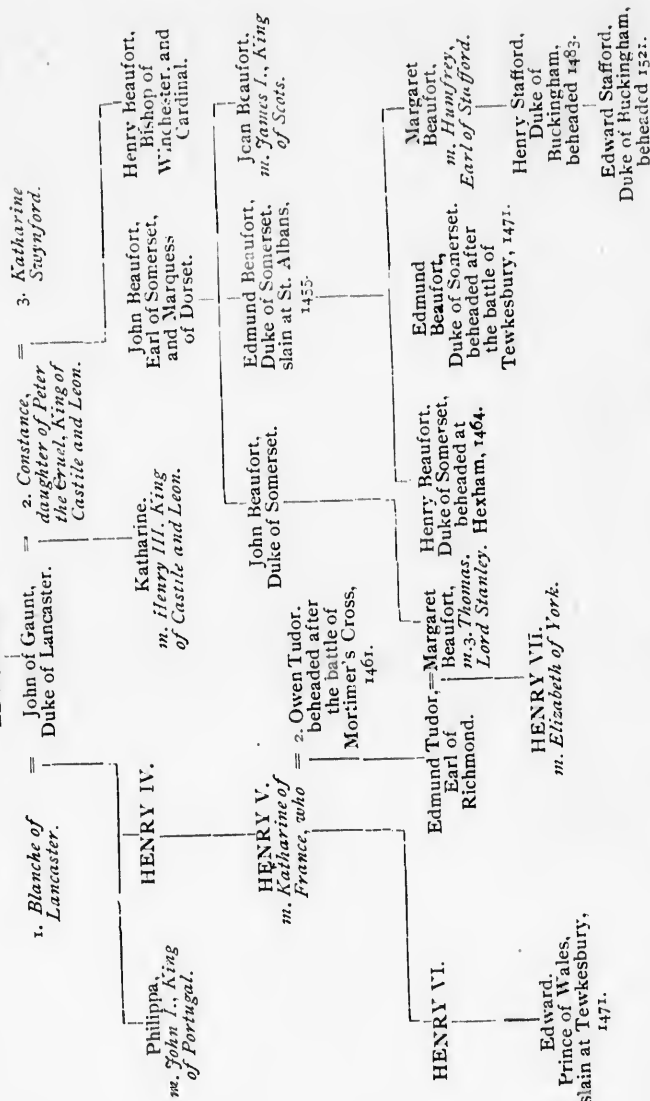 1. Blanche of
Lancaster.
=
John of Gaunt,
Duke of Lancaster.
=
2. Constance,
daughter of Peter
the Cruel, King of
Castile and Leon.
=
3. Katharine
Swynford.
Philippa,
m. John I., King
of Portugal.
HENRY IV.
Katharine.
m. Henry III. King
of Castile and Leon.
John Beaufort,
Earl of Somerset,
and Marquess
of Dorset.
Henry Beaufort,
Bishop of
Winchester, and
Cardinal.
HENRY V.
m. Katharine of
France, who
=
2. Owen Tudor.
beheaded after
the battle of
Mortimer's Cross,
1461.
John Beaufort,
Duke of Somerset.
Edmund Beaufort,
Duke of Somerset.
slain at St. Albans,
1455.
Joan Beaufort,
m. James I., King
of Scots.
HENRY VI.
Edmund Tudor,=Margaret
Earl of
Richmond.
Beaufort,
m. 3. Thomas.
Lord Stanley.
Henry Beaufort,
Duke of Somerset,
beheaded at
Hexham, 1464.
Edmund
Beaufort,
Duke of Somerset.
beheaded after
the battle of
Tewkesbury, 1471.
Margaret
Beaufort,
m. Humfrey,
Earl of Stafford.
Edward.
Prince of Wales,
slain at Tewkesbury,
1471.
HENRY VII.
m. Elizabeth of York.
Henry Stafford,
Duke of
Buckingham,
beheaded 1483.
Edward Stafford,
Duke of Buckingham,
beheaded 1521.